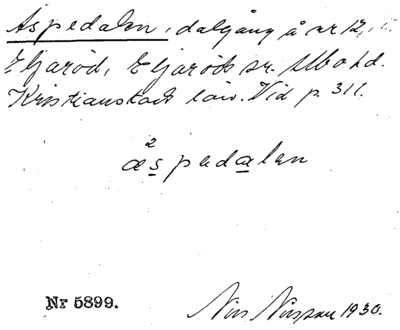 Aspedalen, dalgång å nr 12,
Eljaröd, Eljaröds sn. Albo hd.
Kristianstads län. Vid p. 311.
2
æspedalen
Nr 5899.
Nils Nilsson 1930.